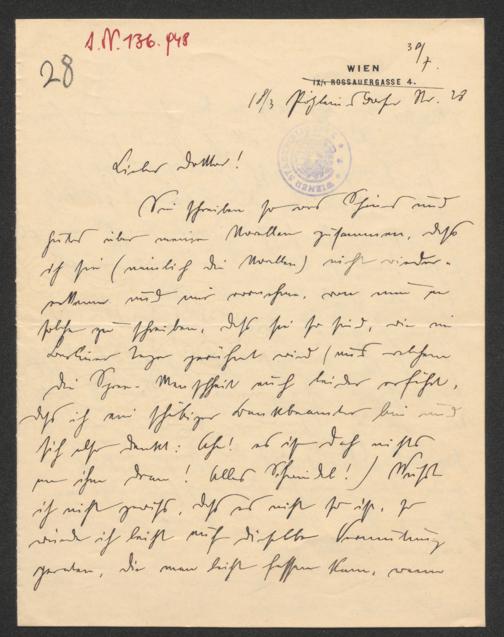 I.N. 136.948
28
30/7.
WIEN
IX/1 ROSSAUERGASSE 4.
18/3 Pötzleinsdorfer Str. 28
Lieber Doktor!
Sie schreiben so was Schönes und
Gutes über meine Novellen zusammen, daß
ich sie (nämlich die Novellen) nicht wieder-
erkenne und mir vornehme, von nun an
solche zu schreiben, daß sie so sind, wie im
Berliner gerühmt wird (aus welchem
die Spree-Menschheit auch leider erfährt,
daß ich ein schäbiger Bankbeamter bin und
sich also denkt: Aha! es ist doch nichts
an ihm dran! Alles Schwindel!) Wüßt
ich nicht gewiß, daß es nicht so ist, so
würde ich leicht auf dieselbe Vermutung
geraten, die man leicht fassen kann, wenn